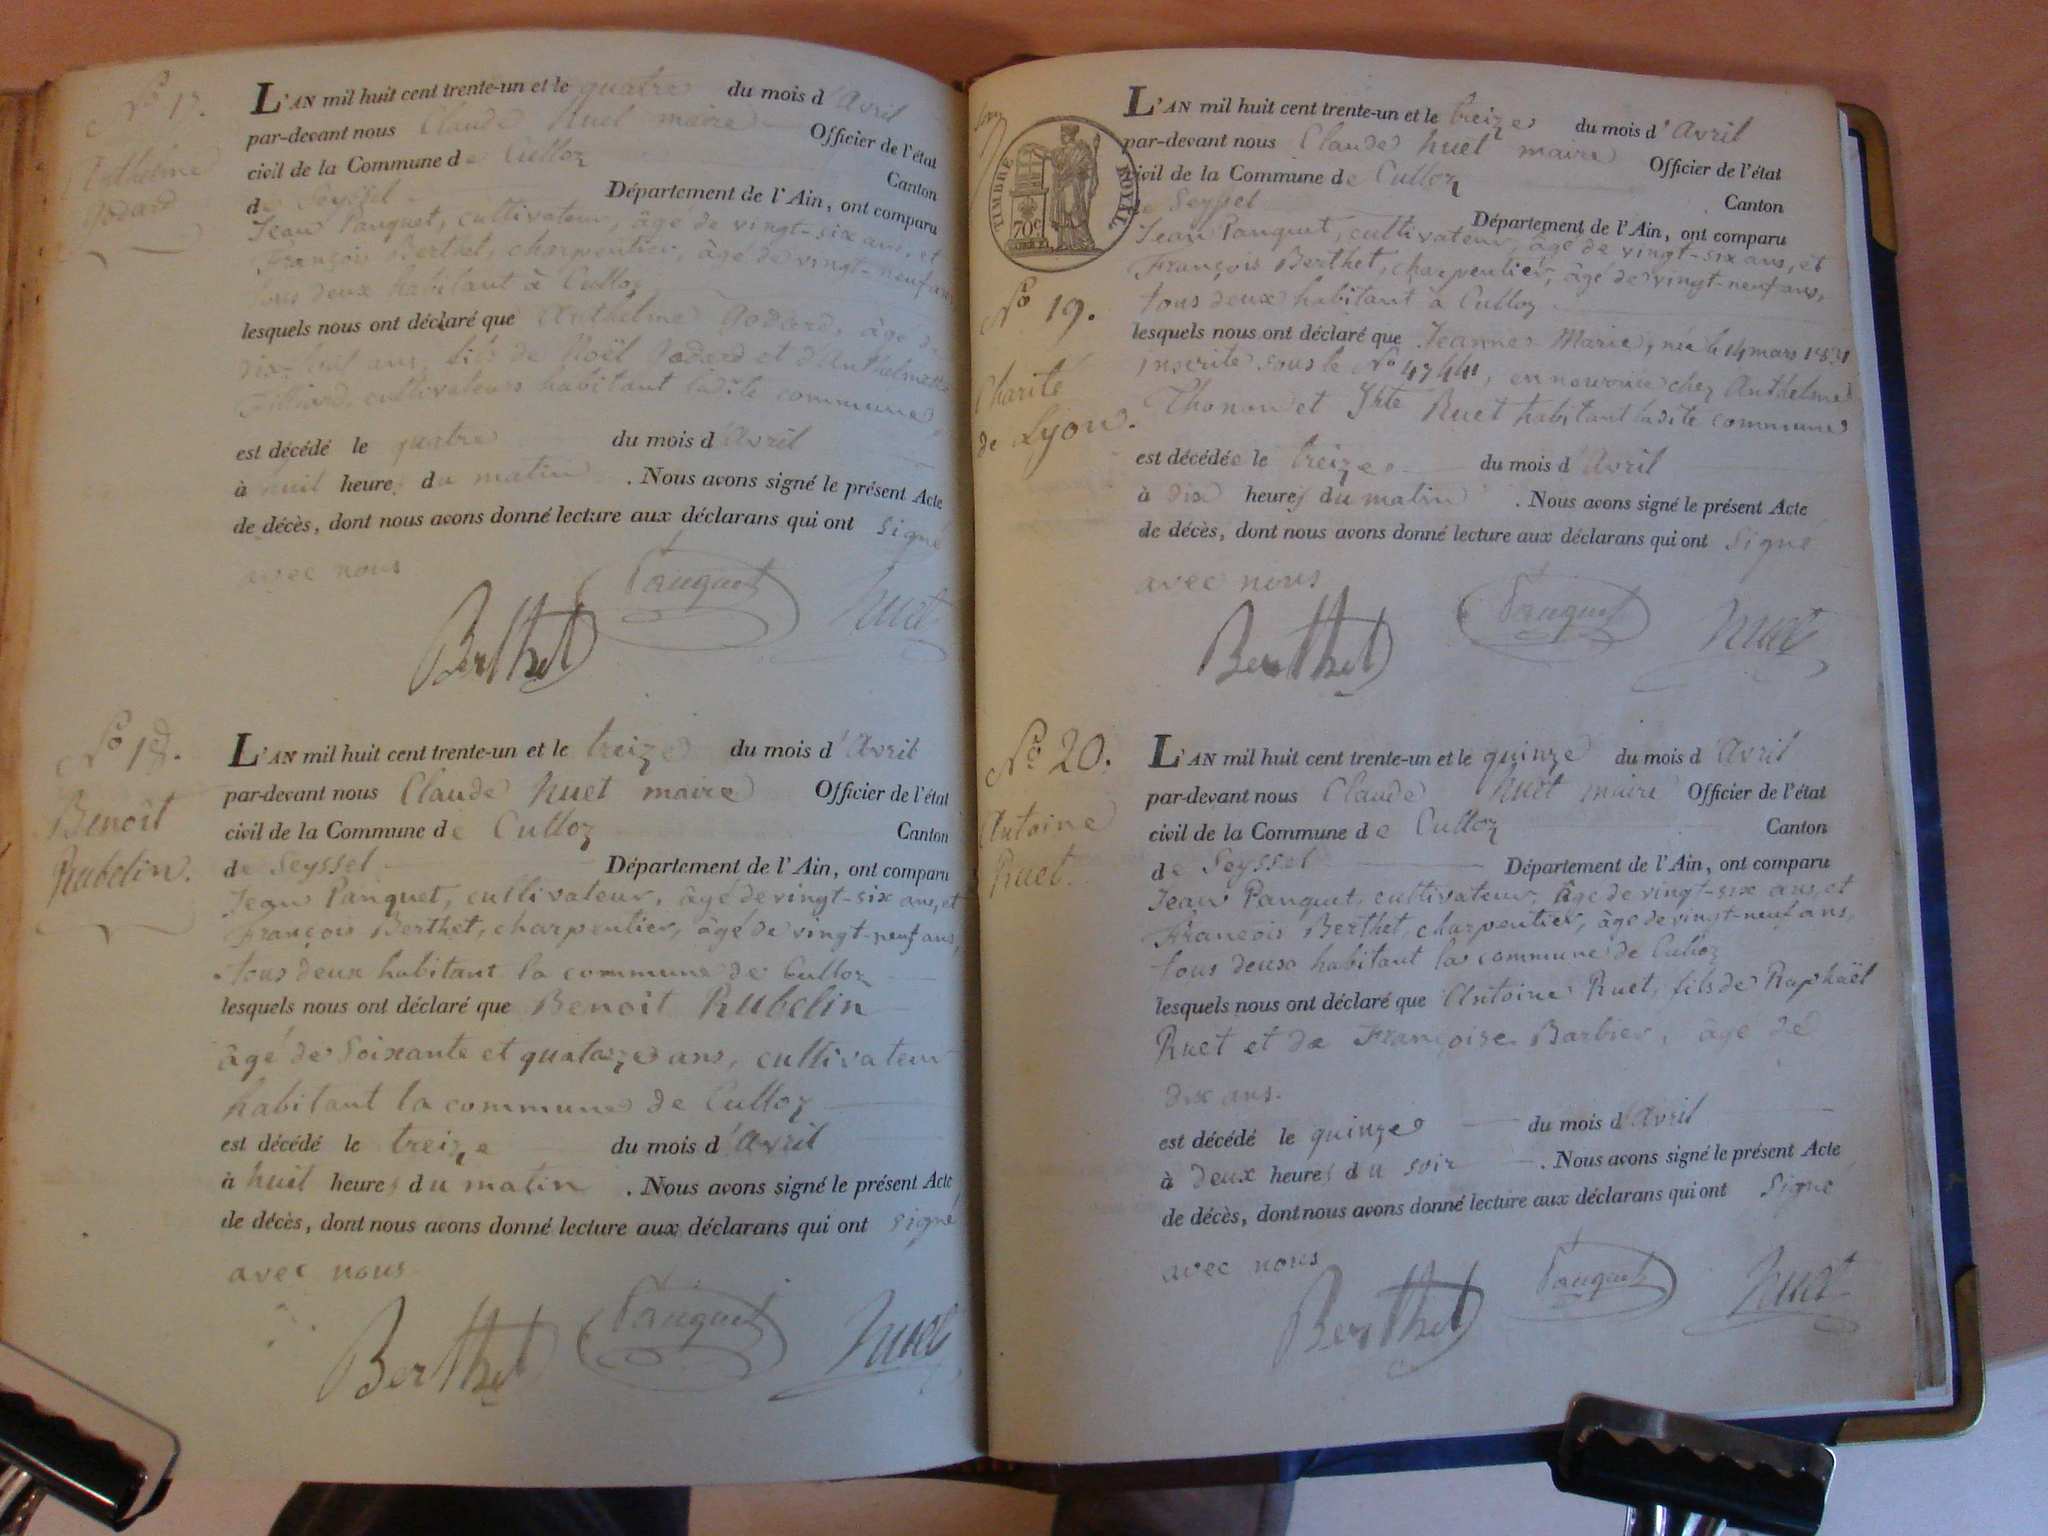 No 17.
Anthelme
Godard
L'AN mil huit cent trente-un et le quatre du mois d'Avril
par-devant nous Claude Huet maire Officier de l'état
civil de la Commune de Culloz Canton
de Seyssel Département de l'Ain, ont comparu
Jean Pauquet, cultivateur, âgé de vingt-six ans, et
François Berthet, charpentier, âgé de vingt-neuf ans
tous deux habitant à Culloz
lesquels nous ont déclaré que Anthelme Godard, âgé de
dix-huit ans, fils de Noël Godard et d'Anthelmette
cultivateurs habitant ladite commune
est décédé le quatre du mois d'Avril
à huit heures du matin . Nous avons signé le présent Acte
de décès, dont nous avons donné lecture aux déclarans qui ont signé
avec nous
Berthet Pauquet Huet
No 18.
Benoît
Rubelin.
L'AN mil huit cent trente-un et le treize du mois d'Avril
par-devant nous Claude Huet maire Officier de l'état
civil de la Commune de Culloz Canton
de Seyssel Département de l'Ain, ont comparu
Jean Pauquet, cultivateur, âgé de vingt-six ans, et
François Berthet, charpentier, âgé de vingt-neuf ans,
tous deux habitant la commune de Culloz
lesquels nous ont déclaré que Benoit Rubelin
âgé de Soixante et quatorze ans, cultivateur
habitant la commune de Culloz
est décédé le treize du mois d'Avril
à huit heures du matin . Nous avons signé le présent Acte
de décès, dont nous avons donné lecture aux déclarans qui ont signé
avec nous
Berthet Pauquet Huet
TIMBRE ROYAL
70c
No 19.
Charité
de Lyon.
L'AN mil huit cent trente-un et le treize du mois d'Avril
par-devant nous Claude Huet maire Officier de l'état
civil de la Commune de Culloz Canton
de Seyssel Département de l'Ain, ont comparu
Jean Pauquet, cultivateur, âgé de vingt-six ans, et
François Berthet, charpentier, âgé de vingt-neuf ans,
tous deux habitant à Culloz
lesquels nous ont déclaré que Jeanne Marie, née le 14 mars 1831
inscrite sous le No en nourrice chez Anthelme
Thonon et Ruet habitant ladite commune
est décédée le treize du mois d'Avril
à dix heures du matin . Nous avons signé le présent Acte
de décès, dont nous avons donné lecture aux déclarans qui ont signé
avec nous
Berthet Pauquet Huet
No 20.
Antoine
Ruet.
L'AN mil huit cent trente-un et le quinze du mois d'Avril
par-devant nous Claude Huet maire Officier de l'état
civil de la Commune de Culloz Canton
de Seyssel Département de l'Ain, ont comparu
Jean Pauquet, cultivateur, âgé de vingt-six ans, et
François Berthet, charpentier, âgé de vingt-neuf ans,
tous deux habitant la commune de Culloz
lesquels nous ont déclaré que Antoine Ruet, fils de Raphaël
Ruet et de Françoise Barbier, âgé de
dix ans.
est décédé le quinze du mois d'Avril
à deux heures du soir . Nous avons signé le présent Acte
de décès, dont nous avons donné lecture aux déclarans qui ont signé
avec nous
Berthet Pauquet Huet